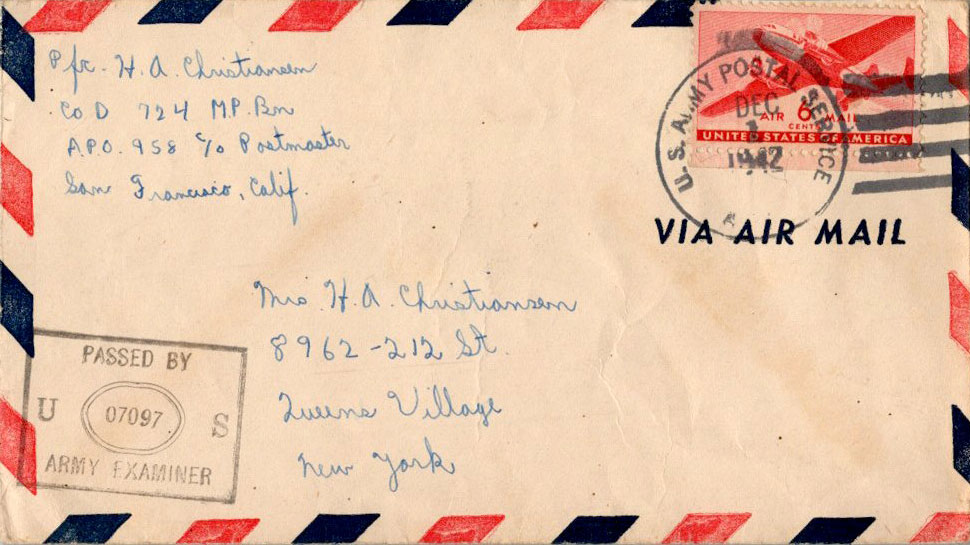 Pfc. H. A. Christiansen
Co D 724 M.P. Bn
A.P.O. 958 c/o Postmaster
San Francisco, Calif.
U. S. ARMY POSTAL SERVICE
DEC
1942
AIR 6 MAIL
CENTS
UNITED STATES OF AMERICA
VIA AIR MAIL
Mrs H. A. Christiansen
8962-212 St.
Queens Village
New York
PASSED BY
U 07097 S
ARMY EXAMINER